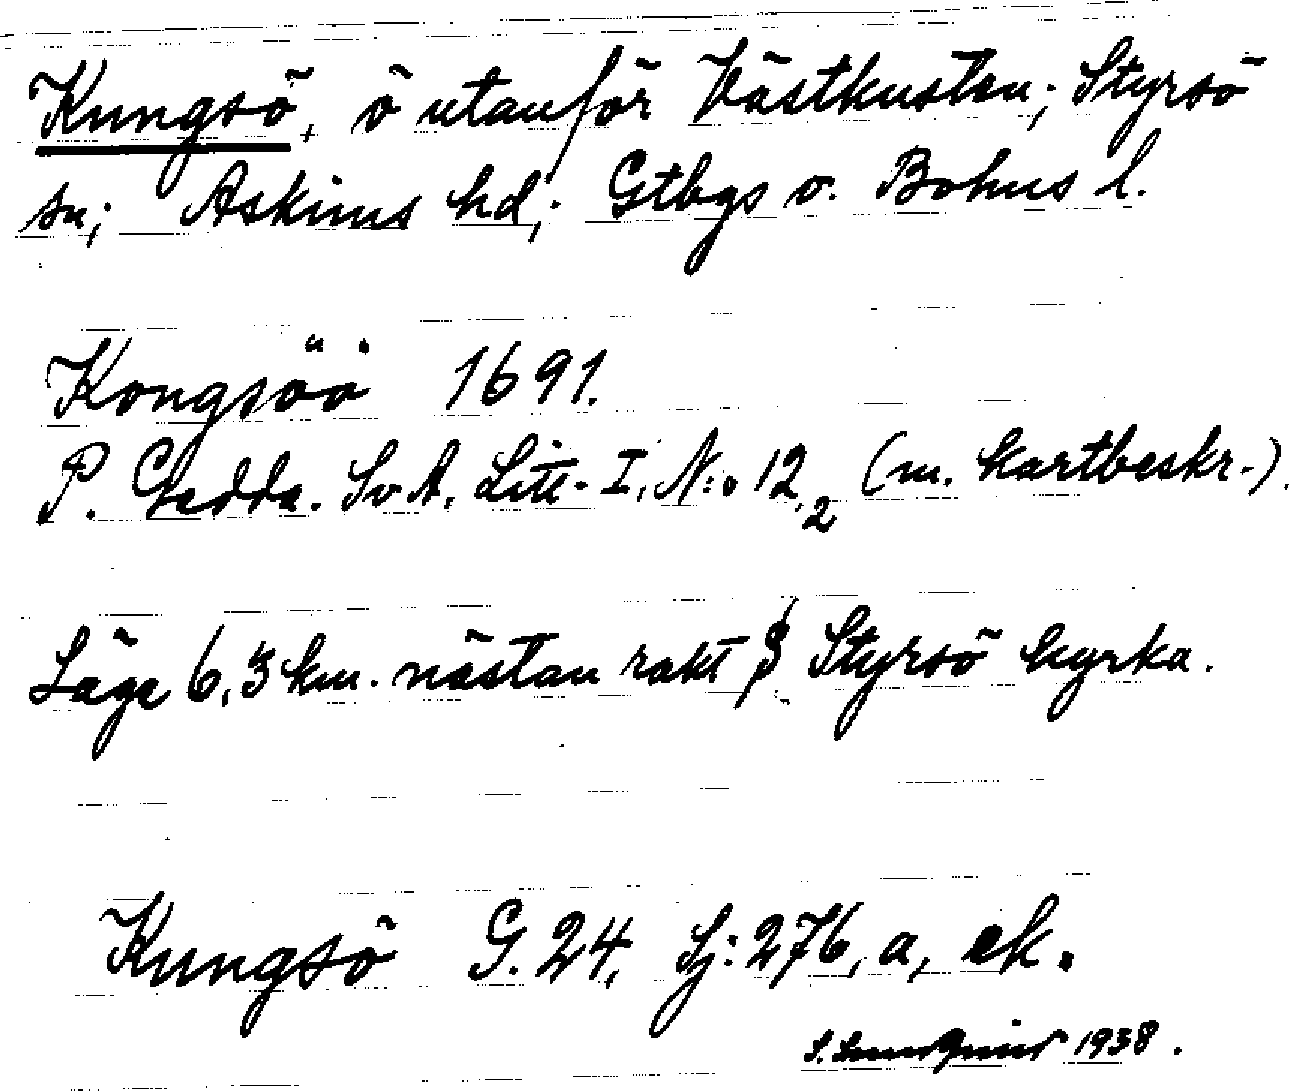 Kungsö, ö utanför Västkusten; Styrsö
sn; Askims hd; Gtbgs o. Bohus l.
Kongsöö 1691.
P. Gedda. Sv. A. Litt. I, N:o 12,2 (m. kartbeskr.).
Läge 6,3 km. nästan rakt S Styrsö kyrka.
Kungsö G. 24, Sj: 276, a, ek.
S. 1938.